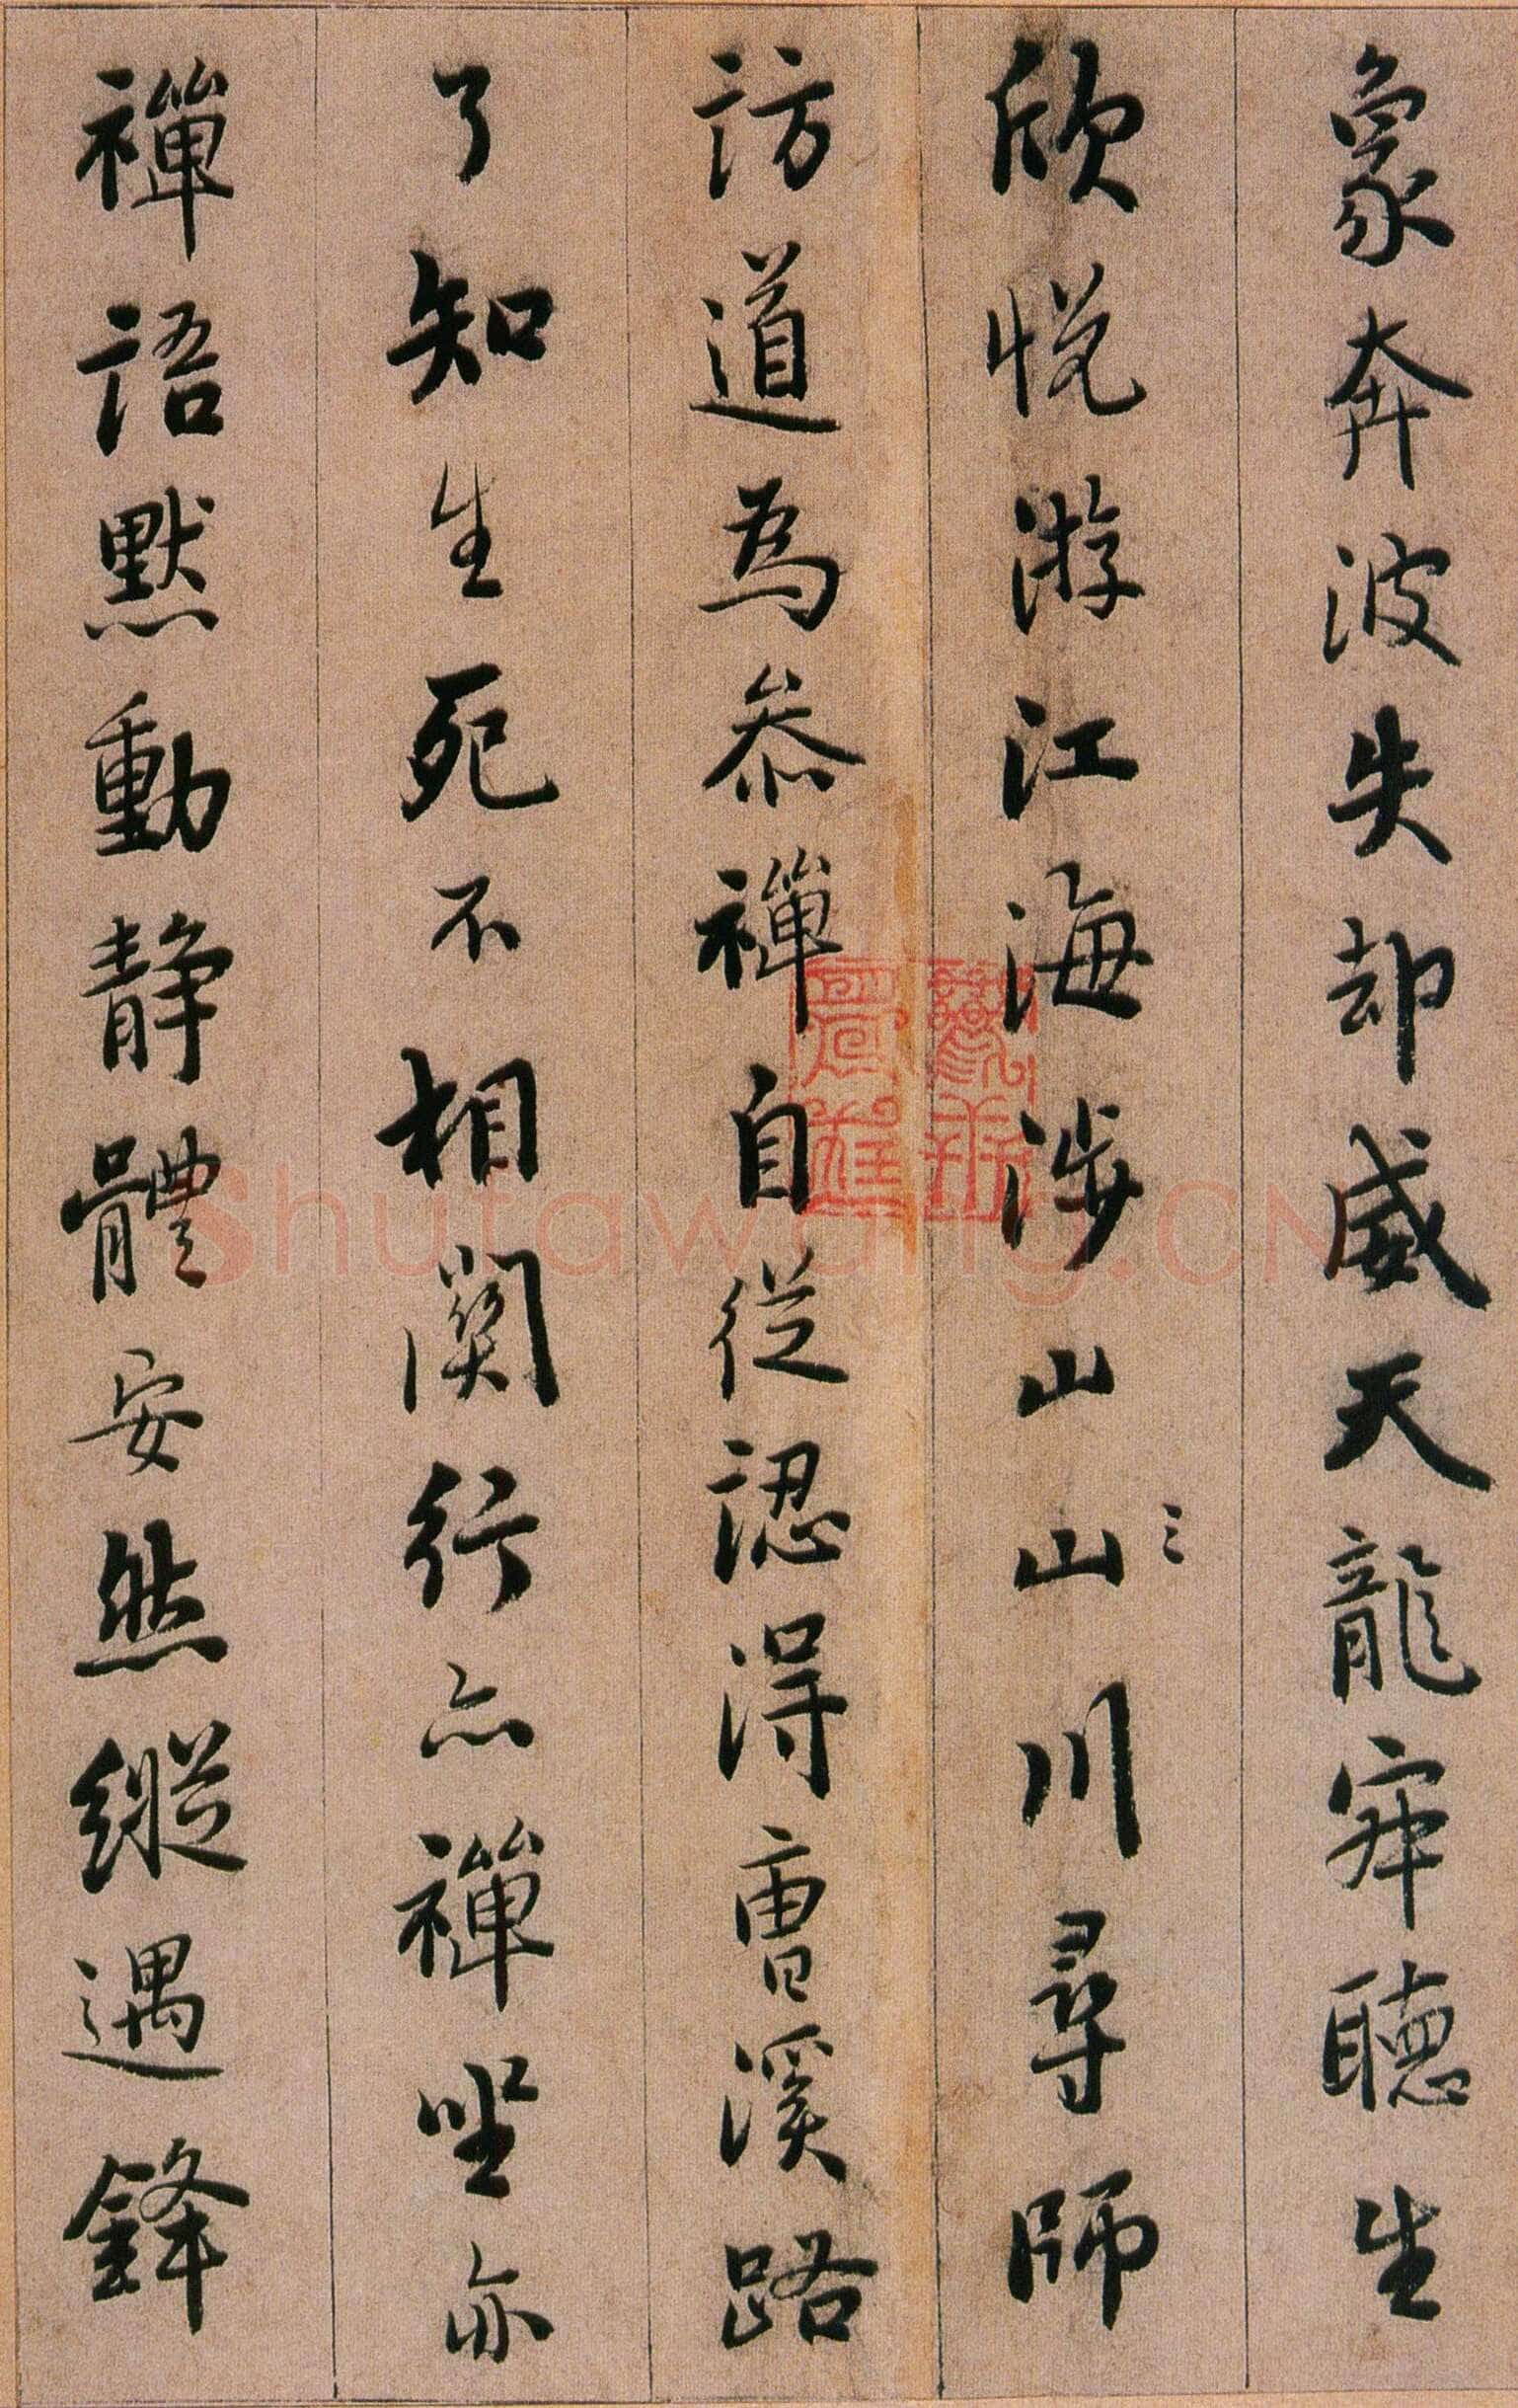 象奔波失却威天龍寂聽生
欣悦游江海涉山山川尋師
三
訪道為叅禪自從認得曹溪路
了知生死不相関行亦禪坐亦
禪語默動静體安然縱遇鋒
Shufawang.CN